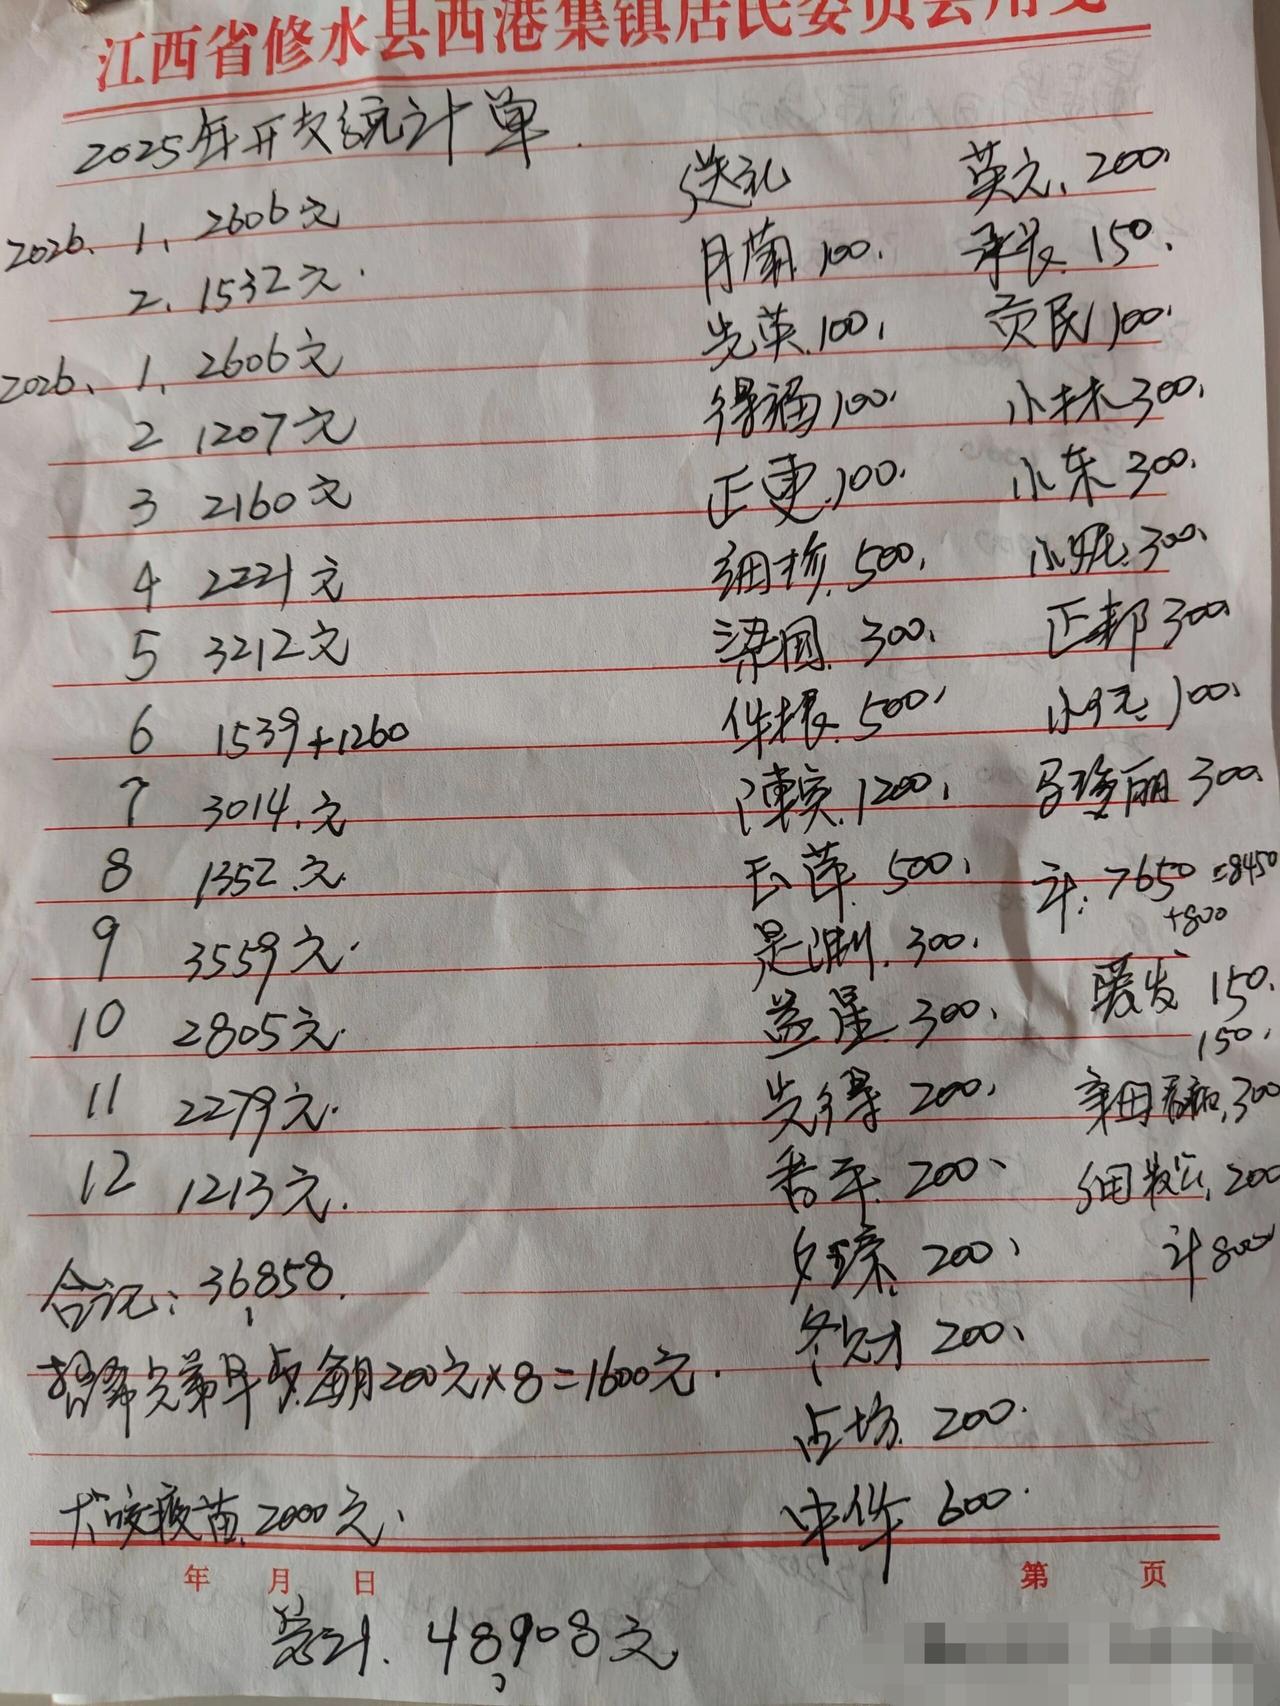 江西省修水县西港集镇居民委员会用笺
2025年开支统计单
2026、1、2606元
2、1532元.
2026、1、2606元
2 1207元
3 2160元
4 2221元
5 3212元
6 1539+1260
7 3014.元
8 1352.元.
9 3559元.
10 2805元.
11 2279元.
12 1213元.
合记:36858.
兄弟早点.每月200元×8=1600元.
犬咬疫苗.2000元、
送礼
月兰.100.
先英.100,
得福100.
正更.100.
细珍.500,
梁国.300,
件根.500,
陳宾.1200,
玉萍.500,
300,
益星300,
先得200,
香平.200、
200,
冬财200、
占坊.200.
中华600.
英元、200,
承良.150.
贡民100,
小林300,
小东300,
小妮.300,
正邦300
小纯.100,
马珍丽300,
计:7650=8450
+800
爱发150.
150,
300
200
计800
年 月 日
第 页
总计.48908元